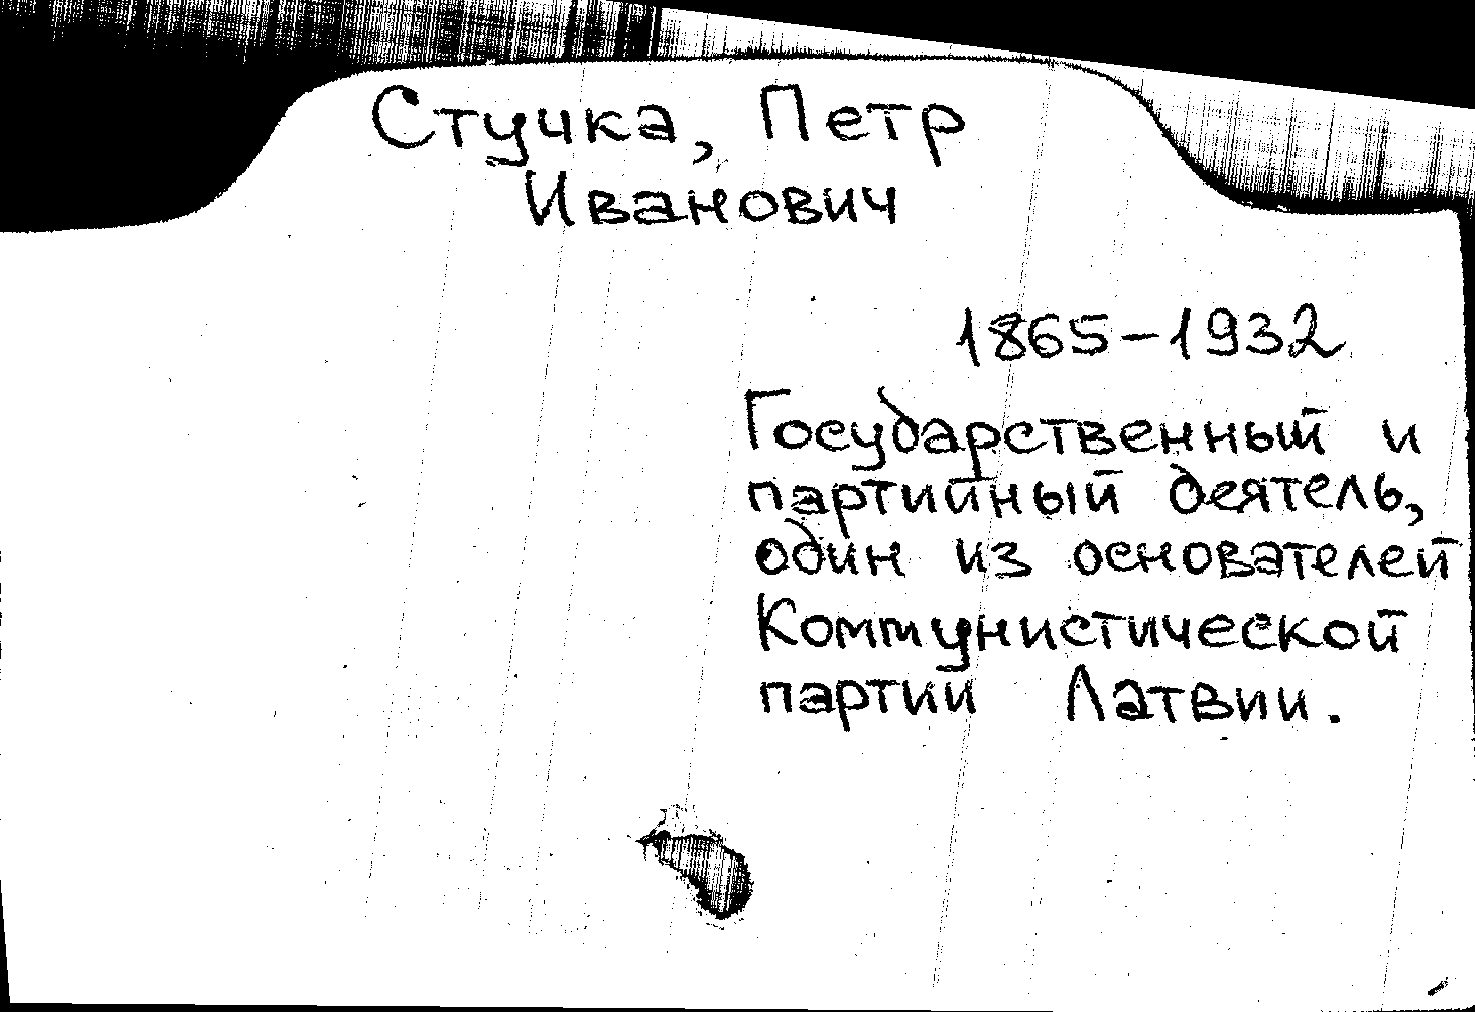 Стучка, Петр
Иванович
1865-1932
Государственный и
партийный деятель,
один из основателей
Коммунистической
партии Латвии.